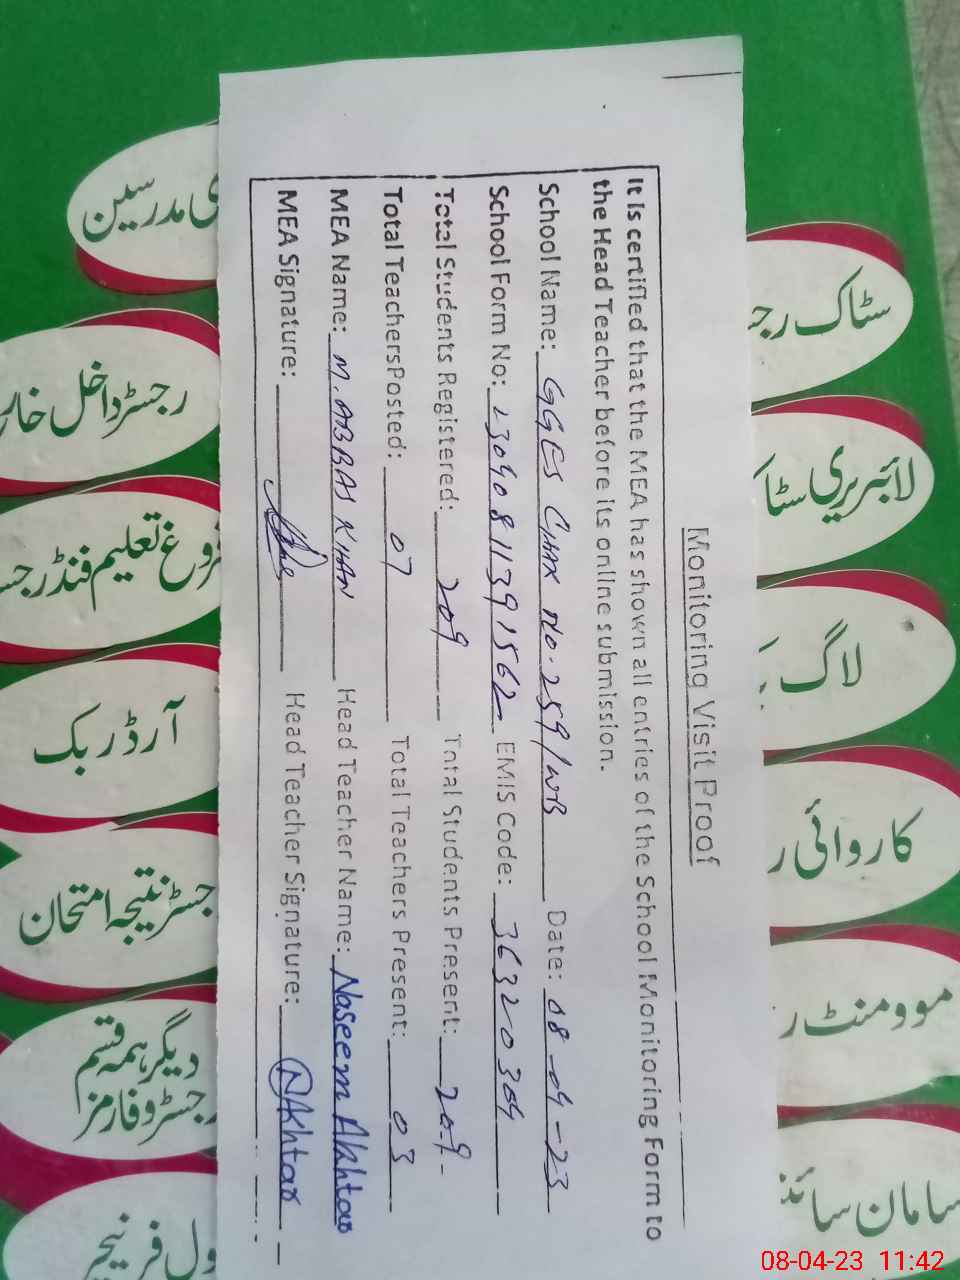 Monitoring Visit Proof
It is certified that the MEA has shown all entries of the School Monitoring Form to
the Head Teacher before its online submission.
School Name: GGES CHAK NO. 259/WB Date: 08-04-23
School Form No: 23040811391562 EMIS Code: 36320304
Total Students Registered: 209 Total Students Present: 209
Total TeachersPosted: 07 Total Teachers Present: 03
MEA Name: M. ABBAS KHAN Head Teacher Name: Naseem Akhtar
MEA Signature: Head Teacher Signature: N Akhtar
ی مدرسین
رجسٹر داخل خار
روغ تعلیم فنڈ رجس
آرڈر بک
جسٹر نتیجہ امتحان
دیگر ہمہ قسم
رجسٹر و فارمز
ول فرنیچر
سٹاک رج
لائبریری سٹا
لاگ
کاروائی ر
موومنٹ ر
سامان سائن
08-04-23 11:42